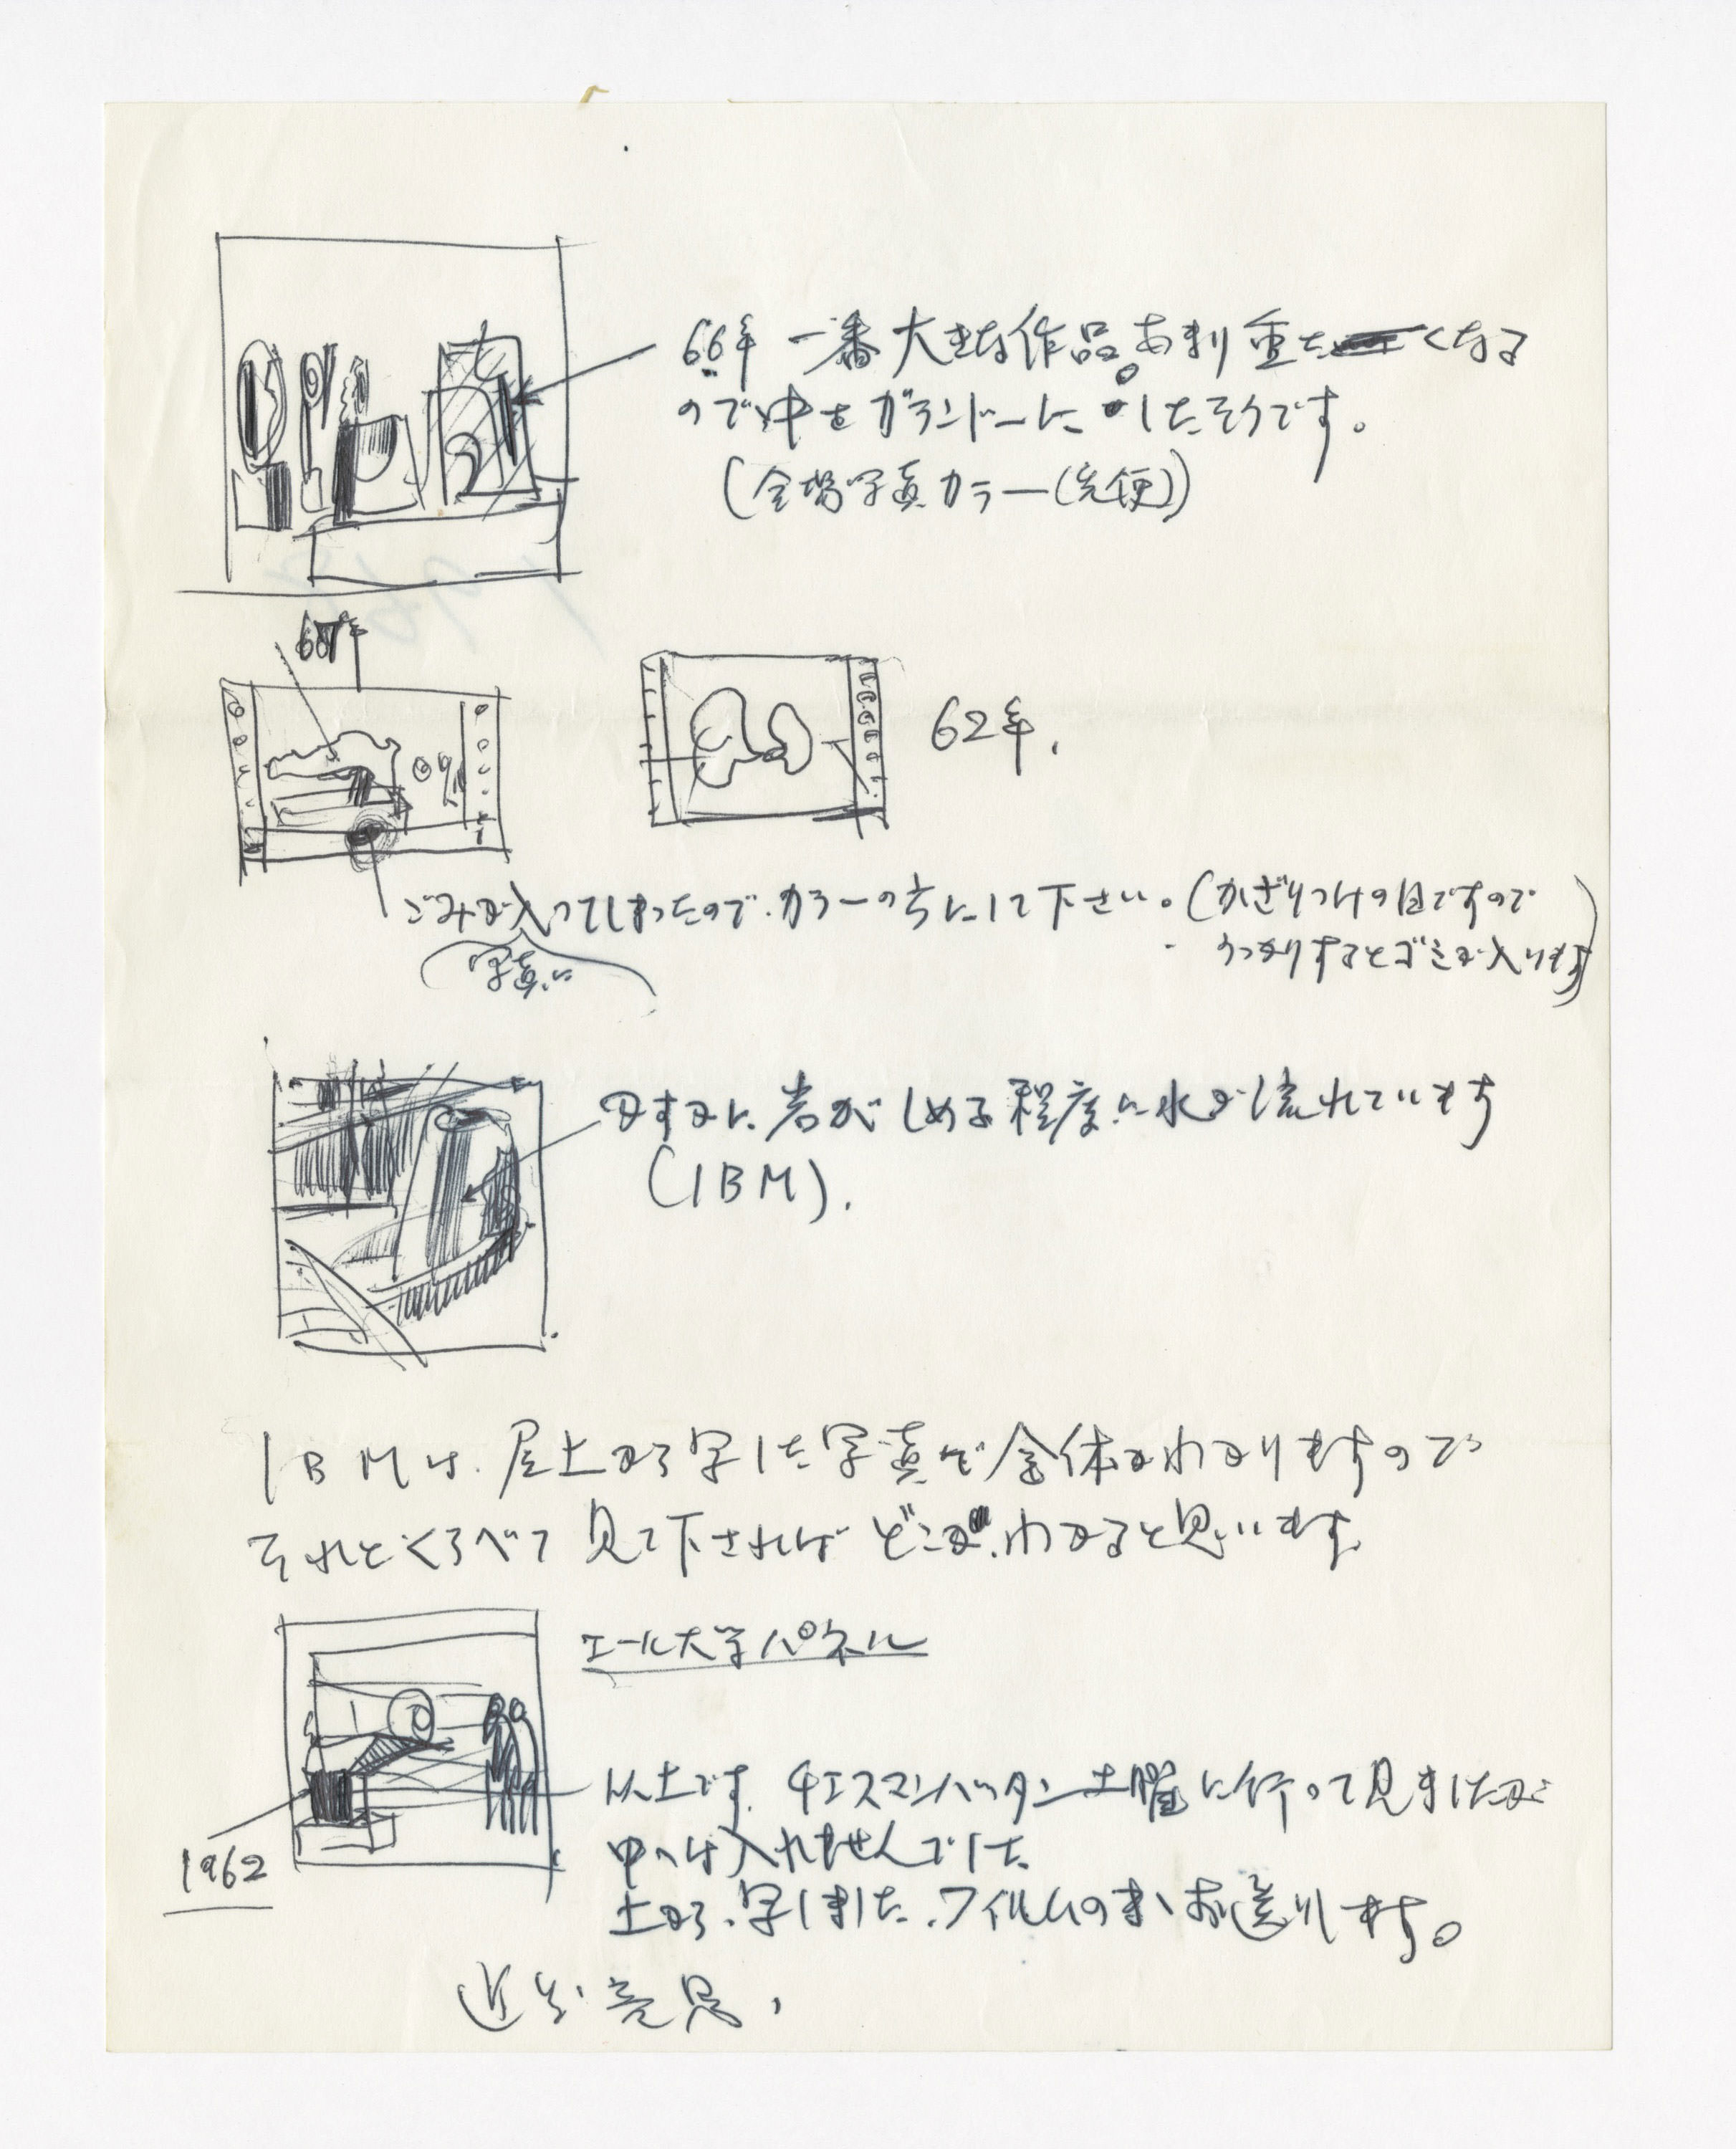 66年 一番大きな作品。あまり重たくなる
ので中をガランドーにしたそうです。
(会場写真カラー(先便))
68年
62年.
ごみが入ってしまったので.カラーの方にして下さい。(かざりつけの日ですので
うっかりするとゴミが入ります)
写真に
かすかに岩がしめる程度に水が流れています
(IBM).
IBMは.屋上から写した写真で全体がわかりますので
それとくらべて見て下さればどこか.わかると思います.
エール大学パネル
以上です.チェスマンハッタン土曜に行って見ましたが
中へは入れませんでした.
上から.写しました.フィルムのまゝお送りします。
1962